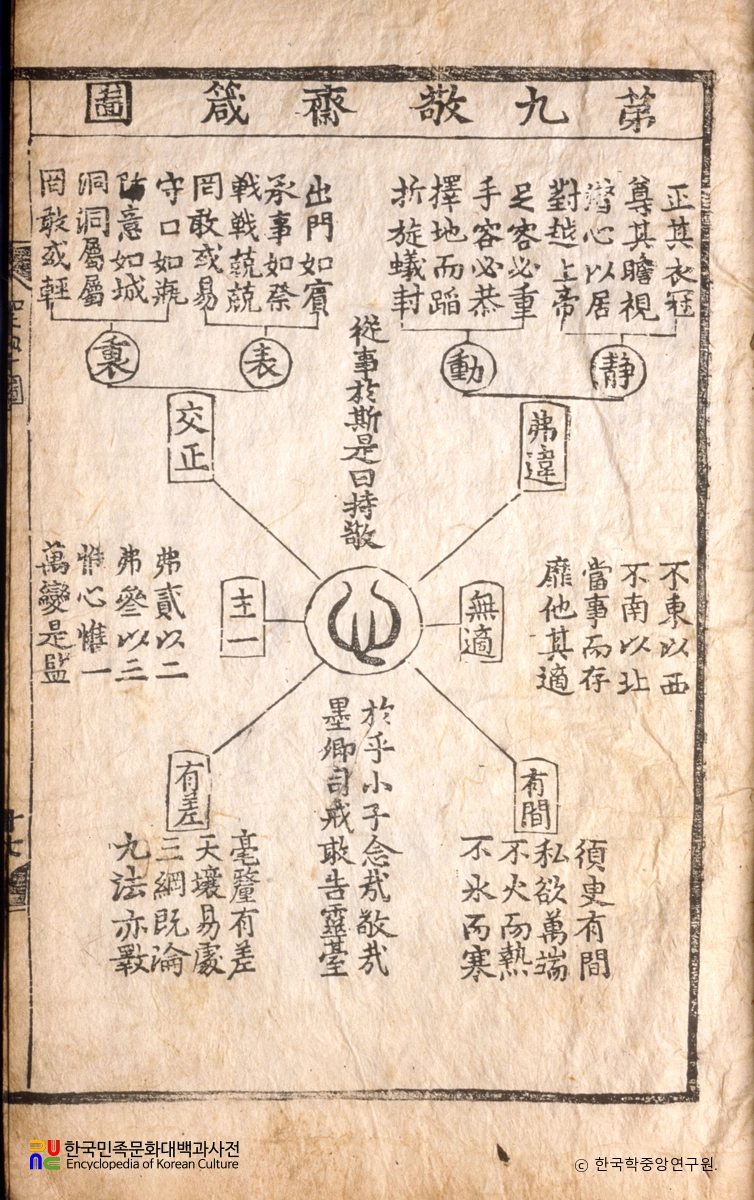 第九敬齋箴圖
正其衣冠
尊其瞻視
潛心以居
對越上帝
足容必重
手容必恭
擇地而蹈
折旋蟻封
出門如賓
承事如祭
戰戰兢兢
罔敢或易
守口如瓶
防意如城
洞洞屬屬
罔敢或輕
靜
動
表
裏
弗違
交正
從事於斯是曰持敬
心
無適
主一
不東以西
不南以北
當事而存
靡他其適
弗貳以二
弗參以三
惟心惟一
萬變是監
有間
有差
須臾有間
私欲萬端
不火而熱
不氷而寒
於乎小子念哉敬哉
墨卿司戒敢告靈臺
毫釐有差
天壤易處
三綱旣淪
九法亦斁
한국민족문화대백과사전
Encyclopedia of Korean Culture
© 한국학중앙연구원.